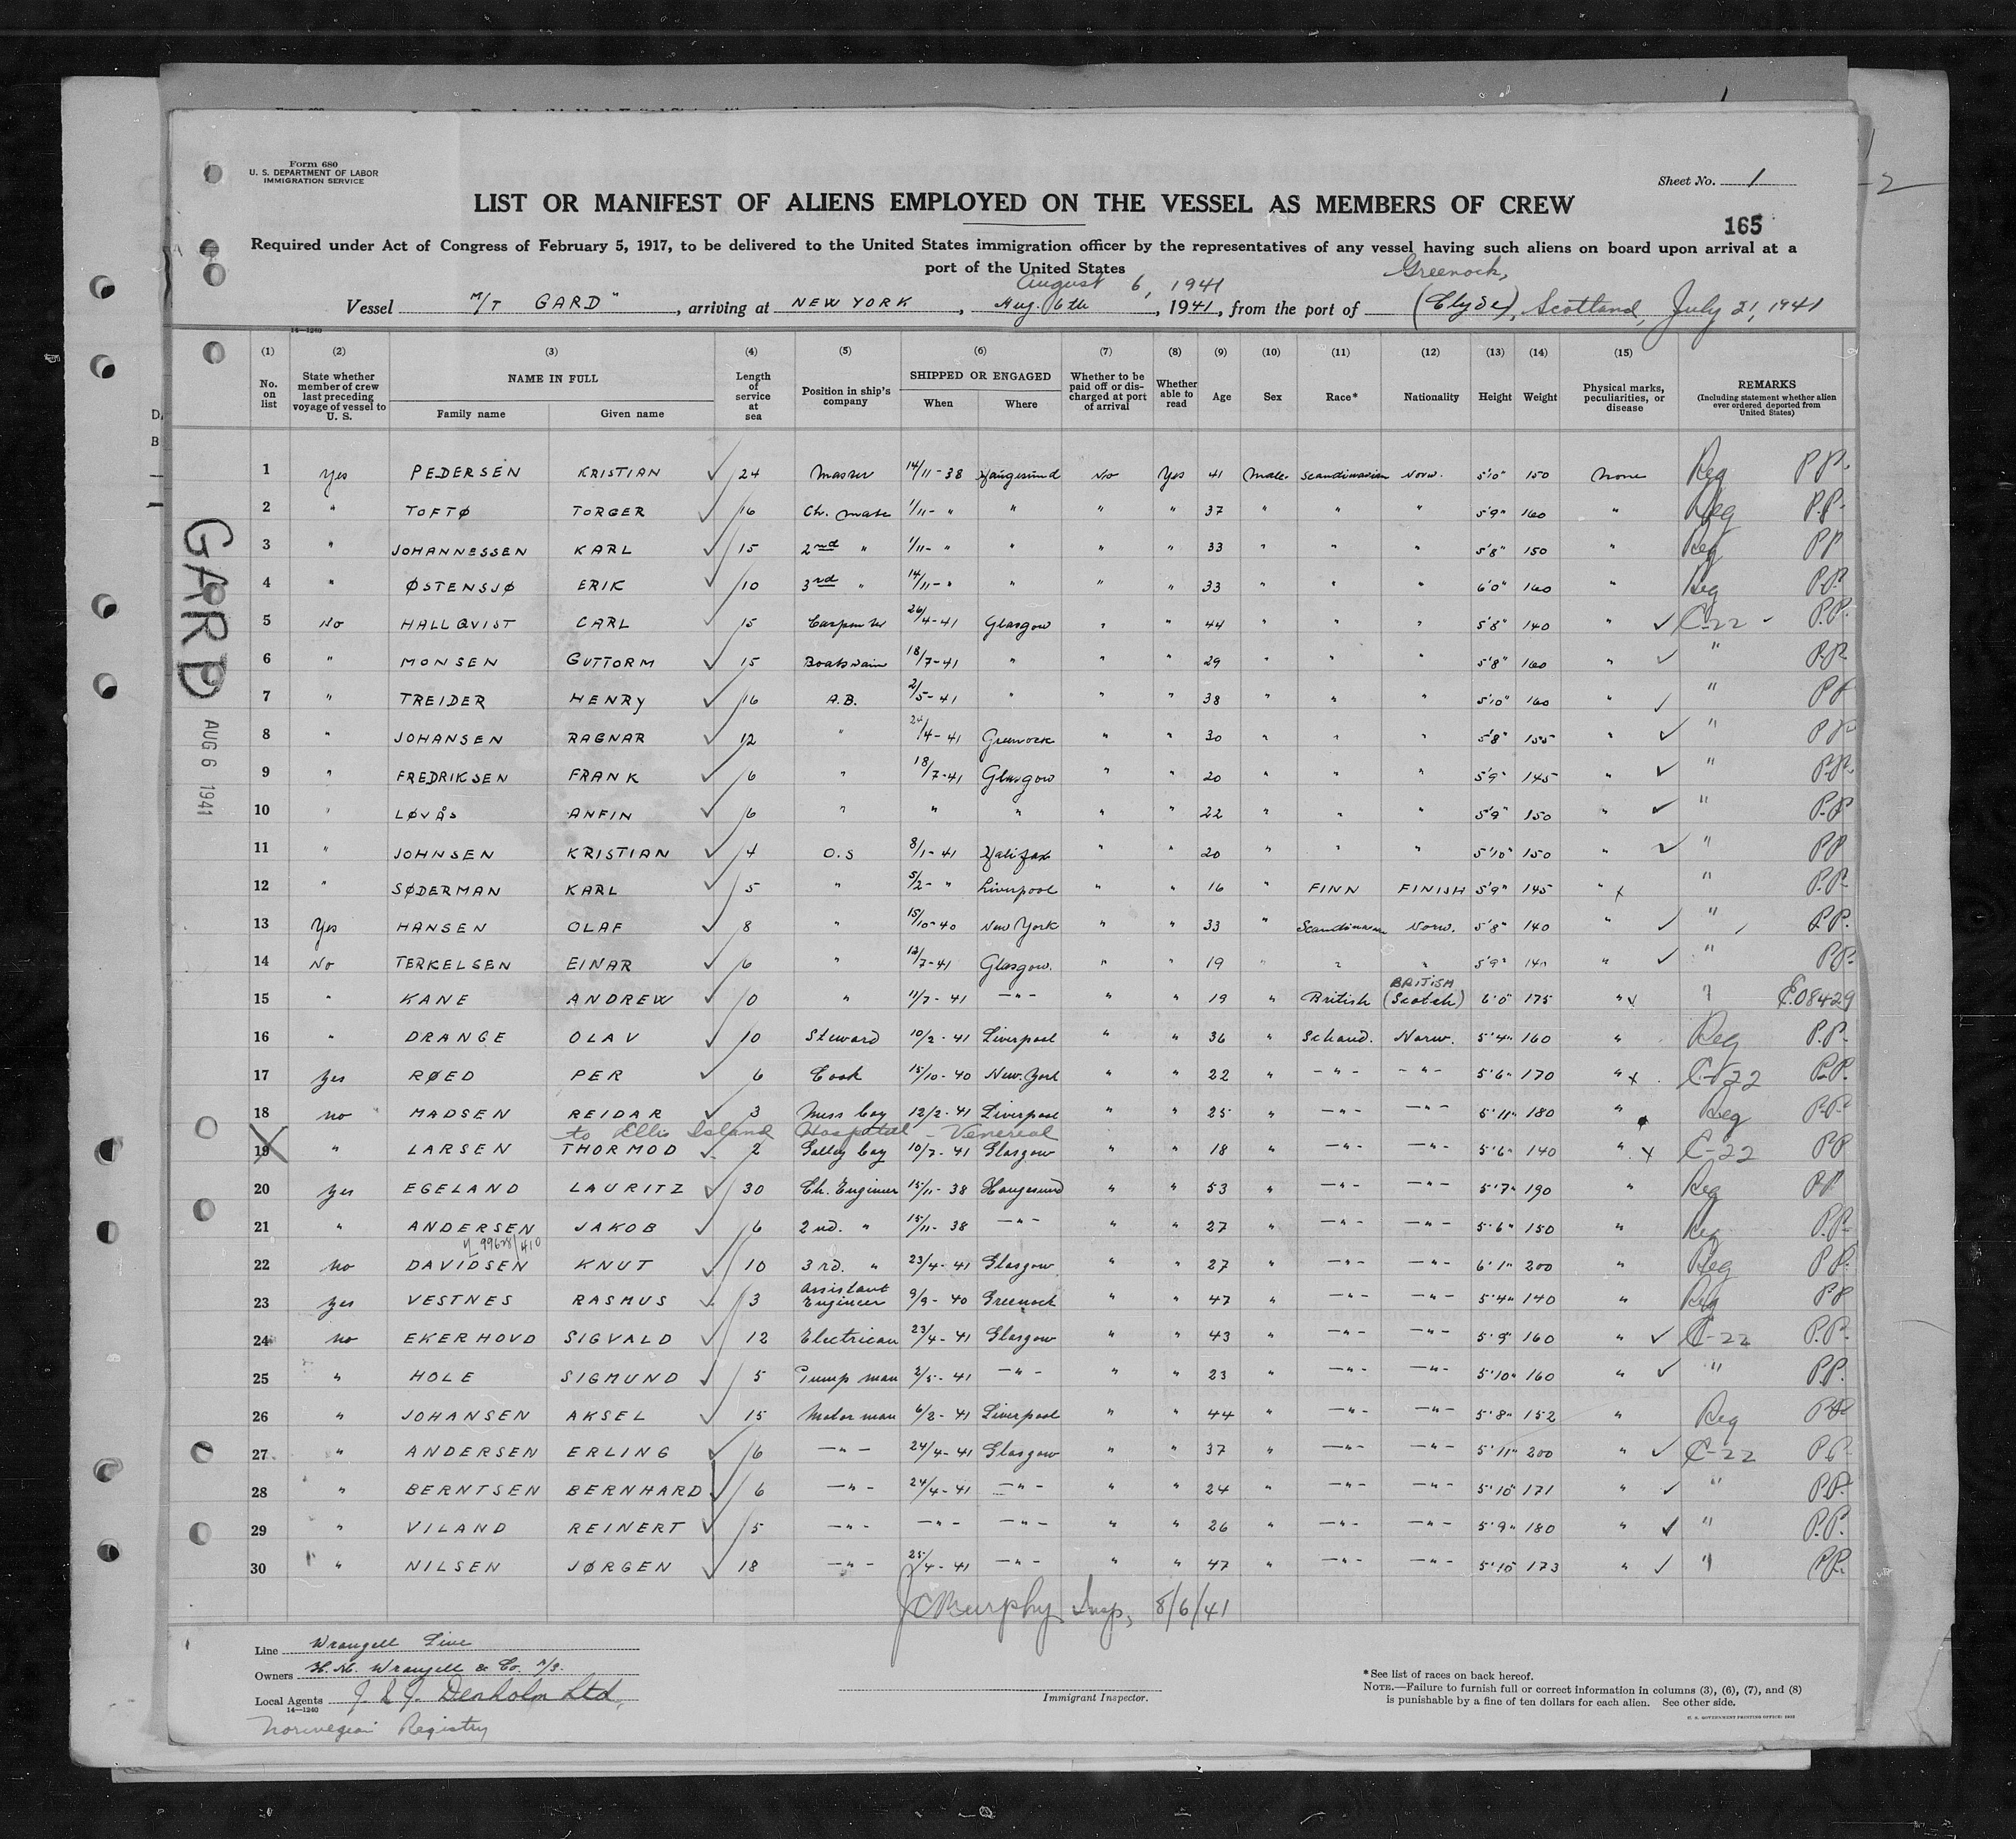 Form 680
U. S. DEPARTMENT OF LABOR
IMMIGRATION SERVICE
Sheet No. 1
2
LIST OR MANIFEST OF ALIENS EMPLOYED ON THE VESSEL AS MEMBERS OF CREW
165
Required under Act of Congress of February 5, 1917, to be delivered to the United States immigration officer by the representatives of any vessel having such aliens on board upon arrival at a
port of the United States
August 6, 1941 Greenock,
Vessel M/T GARD", arriving at NEW YORK, Aug. 6th, 1941, from the port of (Clyde), Scotland, July 21, 1941
14—1240
(1) (2) (3) (4) (5) (6) (7) (8) (9) (10) (11) (12) (13) (14) (15)
No. on list State whether member of crew last preceding voyage of vessel to U. S. NAME IN FULL Family name Given name Length of service at sea Position in ship's company SHIPPED OR ENGAGED When Where Whether to be paid off or discharged at port of arrival Whether able to read Age Sex Race* Nationality Height Weight Physical marks, peculiarities, or disease REMARKS (Including statement whether alien ever ordered deported from United States)
1 Yes PEDERSEN KRISTIAN ✓ 24 Master 14/11-38 Haugesund No Yes 41 Male Scandinavian Norw. 5'10" 150 None Reg P.P.
2 " TOFTØ TORGER ✓ 16 Ch. Mate 1/11- " " " " 37 " " " 5'9" 160 " Reg P.P.
3 " JOHANNESSEN KARL ✓ 15 2nd " 1/11- " " " " 33 " " " 5'8" 150 " Reg PP
4 " ØSTENSJØ ERIK ✓ 10 3rd " 14/11- " " " " 33 " " " 6'0" 160 " Reg P.P.
5 No HALLQVIST CARL ✓ 15 Carpenter 26/4-41 Glasgow " " 44 " " " 5'8" 140 " ✓ C-22 P.P.
6 " MONSEN GUTTORM ✓ 15 Boatswain 18/7-41 " " " 29 " " " 5'8" 160 " ✓ " P.P.
7 " TREIDER HENRY ✓ 16 A.B. 2/5-41 " " " 38 " " " 5'10" 160 " ✓ " PP
8 " JOHANSEN RAGNAR ✓ 12 " 24/4-41 Greenock " " 30 " " " 5'8" 155 " ✓ " PP
9 " FREDRIKSEN FRANK ✓ 6 " 18/7-41 Glasgow " " 20 " " " 5'9" 145 " ✓ " P.P.
10 " LØVÅS ANFIN ✓ 6 " " " " " 22 " " " 5'9" 150 " ✓ " P.P
11 " JOHNSEN KRISTIAN ✓ 4 O.S 8/1-41 Halifax " " 20 " " " 5'10" 150 " ✓ " PP
12 " SØDERMAN KARL ✓ 5 " 5/2- " Liverpool " " 16 " FINN FINISH 5'9" 145 " x " P.P.
13 Yes HANSEN OLAF ✓ 8 " 15/10-40 New York " " 33 " Scandinavian Norw. 5'8" 140 " ✓ " P.P.
14 No TERKELSEN EINAR ✓ 6 " 12/7-41 Glasgow. " " 19 " " " 5'9" 140 " ✓ " P.P.
15 " KANE ANDREW ✓ 0 " 11/7-41 -"- " " 19 " British BRITISH (Scotch) 6'0" 175 " x " E.08429
16 " DRANGE OLAV ✓ 10 Steward 10/2-41 Liverpool " " 36 " Schand. Norw. 5'4" 160 " Reg P.P.
17 Yes RØED PER ✓ 6 Cook 15/10-40 New. York " " 22 " -"- -"- 5'6" 170 " x C-22 P.P.
18 no MADSEN REIDAR ✓ 3 Mess boy 12/2-41 Liverpool " " 25 " -"- -"- 5'11" 180 " Reg P.P.
to Ellis Island Hospital - Venereal
19 " LARSEN THORMOD ✓ 2 Galley boy 10/7-41 Glasgow " " 18 " -"- -"- 5'6" 140 " x C-22 PP
20 yes EGELAND LAURITZ ✓ 30 Ch. Engineer 15/11-38 Haugesund " " 53 " -"- -"- 5'7" 190 " Reg PP
21 " ANDERSEN JAKOB ✓ 6 2nd. " 15/11-38 -"- " " 27 " -"- -"- 5'6" 150 " Reg P.P.
99628/410
22 no DAVIDSEN KNUT ✓ 10 3rd. " 23/4-41 Glasgow " " 27 " -"- -"- 6'1" 200 " Reg PP.
23 yes VESTNES RASMUS ✓ 3 Assistant Engineer 9/9-40 Greenock " " 47 " -"- -"- 5'4" 140 " Reg PP
24 no EKERHOVD SIGVALD ✓ 12 Electrican 23/4-41 Glasgow " " 43 " -"- -"- 5'9" 160 " ✓ C-22 P.P.
25 " HOLE SIGMUND ✓ 5 Pump man 2/5-41 -"- " " 23 " -"- -"- 5'10" 160 " ✓ " P.P.
26 " JOHANSEN AKSEL ✓ 15 Motor man 6/2-41 Liverpool " " 44 " -"- -"- 5'8" 152 " Reg PP
27 " ANDERSEN ERLING ✓ 6 -"- 24/4-41 Glasgow " " 37 " -"- -"- 5'11" 200 " ✓ C-22 P.P.
28 " BERNTSEN BERNHARD ✓ 6 -"- 24/4-41 -"- " " 24 " -"- -"- 5'10 171 " ✓ " P.P.
29 " VILAND REINERT ✓ 5 -"- -"- -"- " " 26 " -"- -"- 5'9" 180 " ✓ " P.P.
30 " NILSEN JØRGEN ✓ 18 -"- 25/4-41 -"- " " 47 " -"- -"- 5'10 173 " ✓ " P.P.
JC Murphy Insp, 8/6/41
GARD
AUG 6 1941
Line Wrangell Line
Owners H. M. Wrangell & Co. A/S.
Local Agents J. & J. Denholm Ltd,
14—1240
Norwegian Registry
Immigrant Inspector.
*See list of races on back hereof.
NOTE.—Failure to furnish full or correct information in columns (3), (6), (7), and (8)
is punishable by a fine of ten dollars for each alien. See other side.